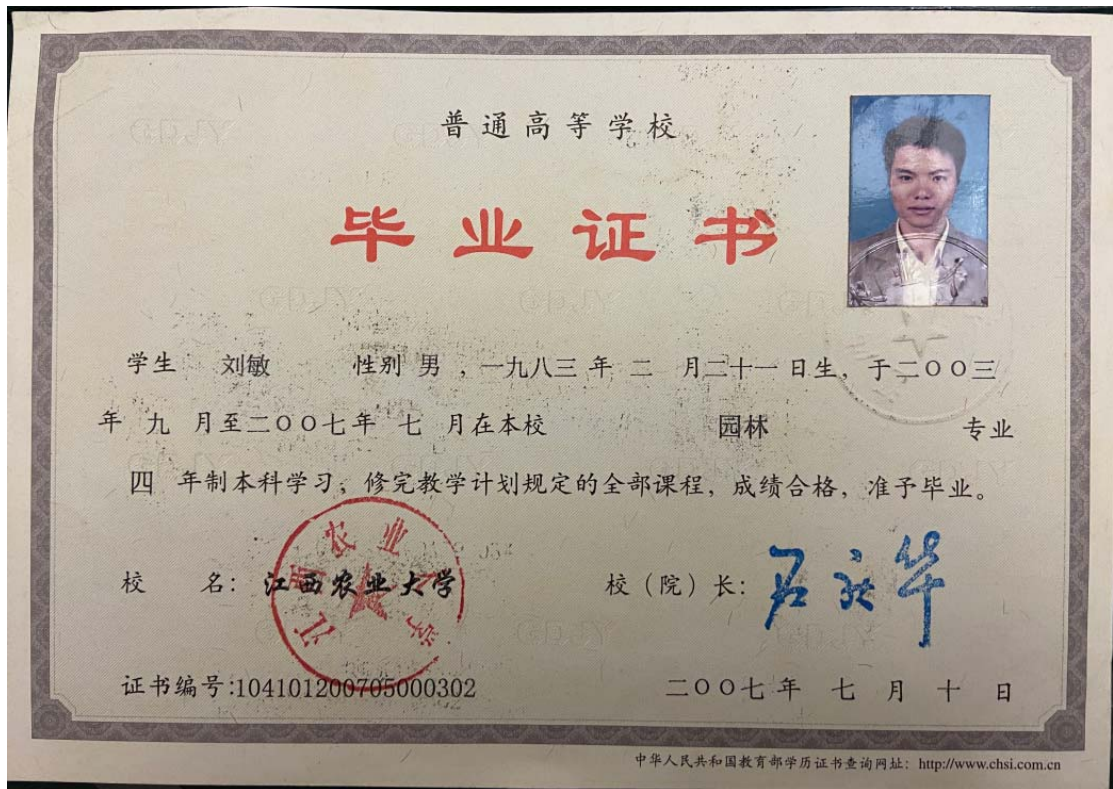 普通高等学校
毕业证书
学生 刘敏 性别 男 ，一九八三 年 二 月二十一 日生，于二〇〇三
年 九 月至二〇〇七年 七 月在本校 园林 专业
四 年制本科学习，修完教学计划规定的全部课程，成绩合格，准予毕业。
校 名：江西农业大学
江西农业大学
校（院）长：石庆华
证书编号:104101200705000302
二〇〇七年 七 月 十 日
中华人民共和国教育部学历证书查询网址：http://www.chsi.com.cn